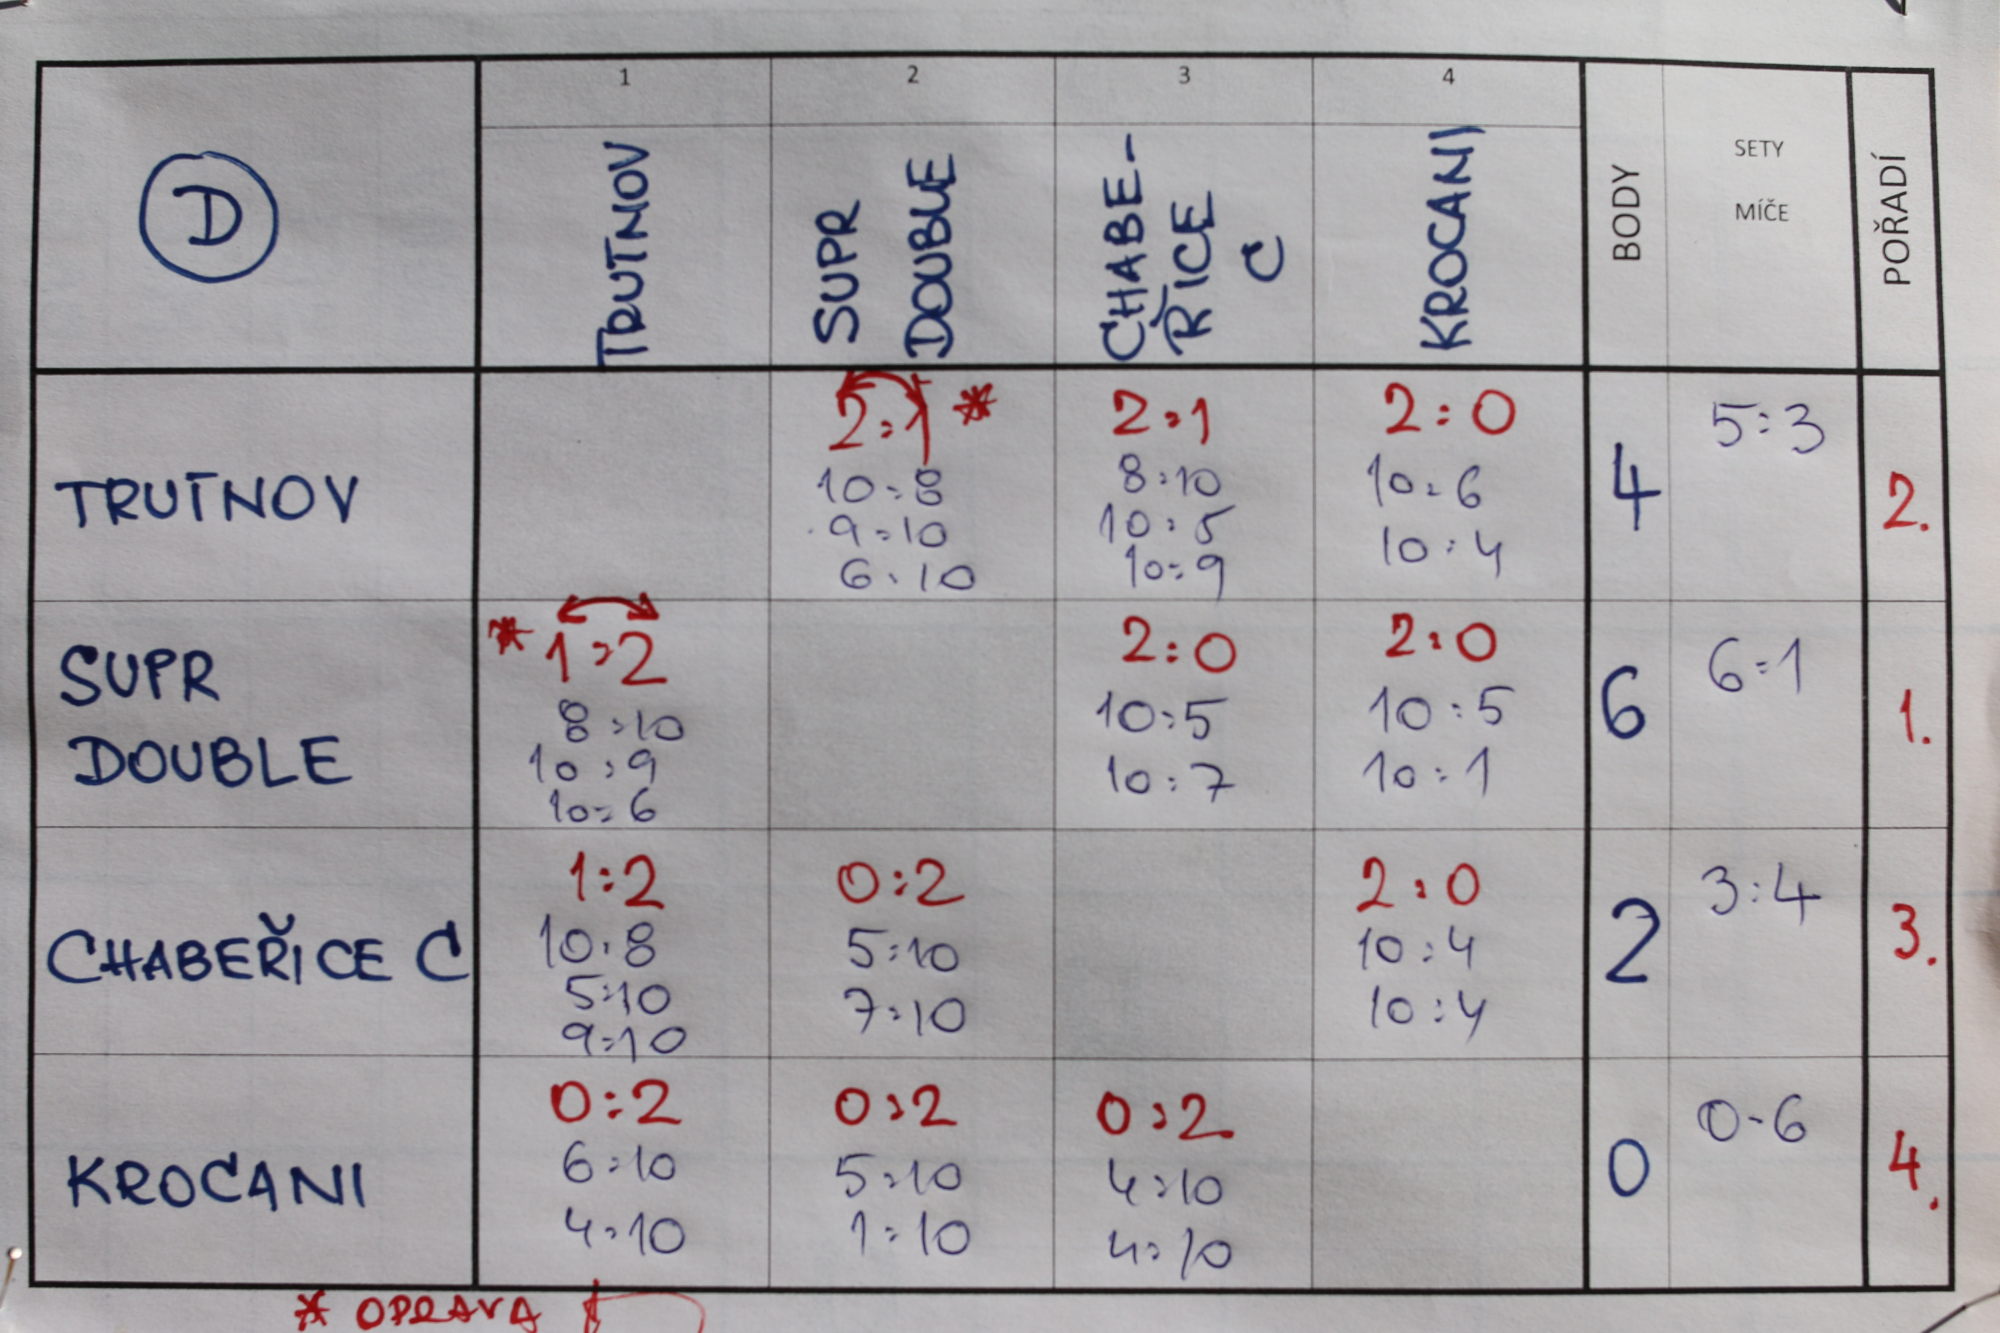 1 2 3 4
D TRUTNOV SUPR DOUBLE CHABE-ŘICE C KROCANI BODY SETY MÍČE POŘADÍ
TRUTNOV
2:1 * 2:1 2:0 4 5:3 2.
10:8 8:10 10:6
9:10 10:5 10:4
6:10 10:9
SUPR DOUBLE
* 1:2 2:0 2:0 6 6:1 1.
8:10 10:5 10:5
10:9 10:7 10:1
10:6
CHABEŘICE C
1:2 0:2 2:0 2 3:4 3.
10:8 5:10 10:4
5:10 7:10 10:4
9:10
KROCANI
0:2 0:2 0:2 0 0-6 4.
6:10 5:10 4:10
4:10 1:10 4:10
* OPRAVA